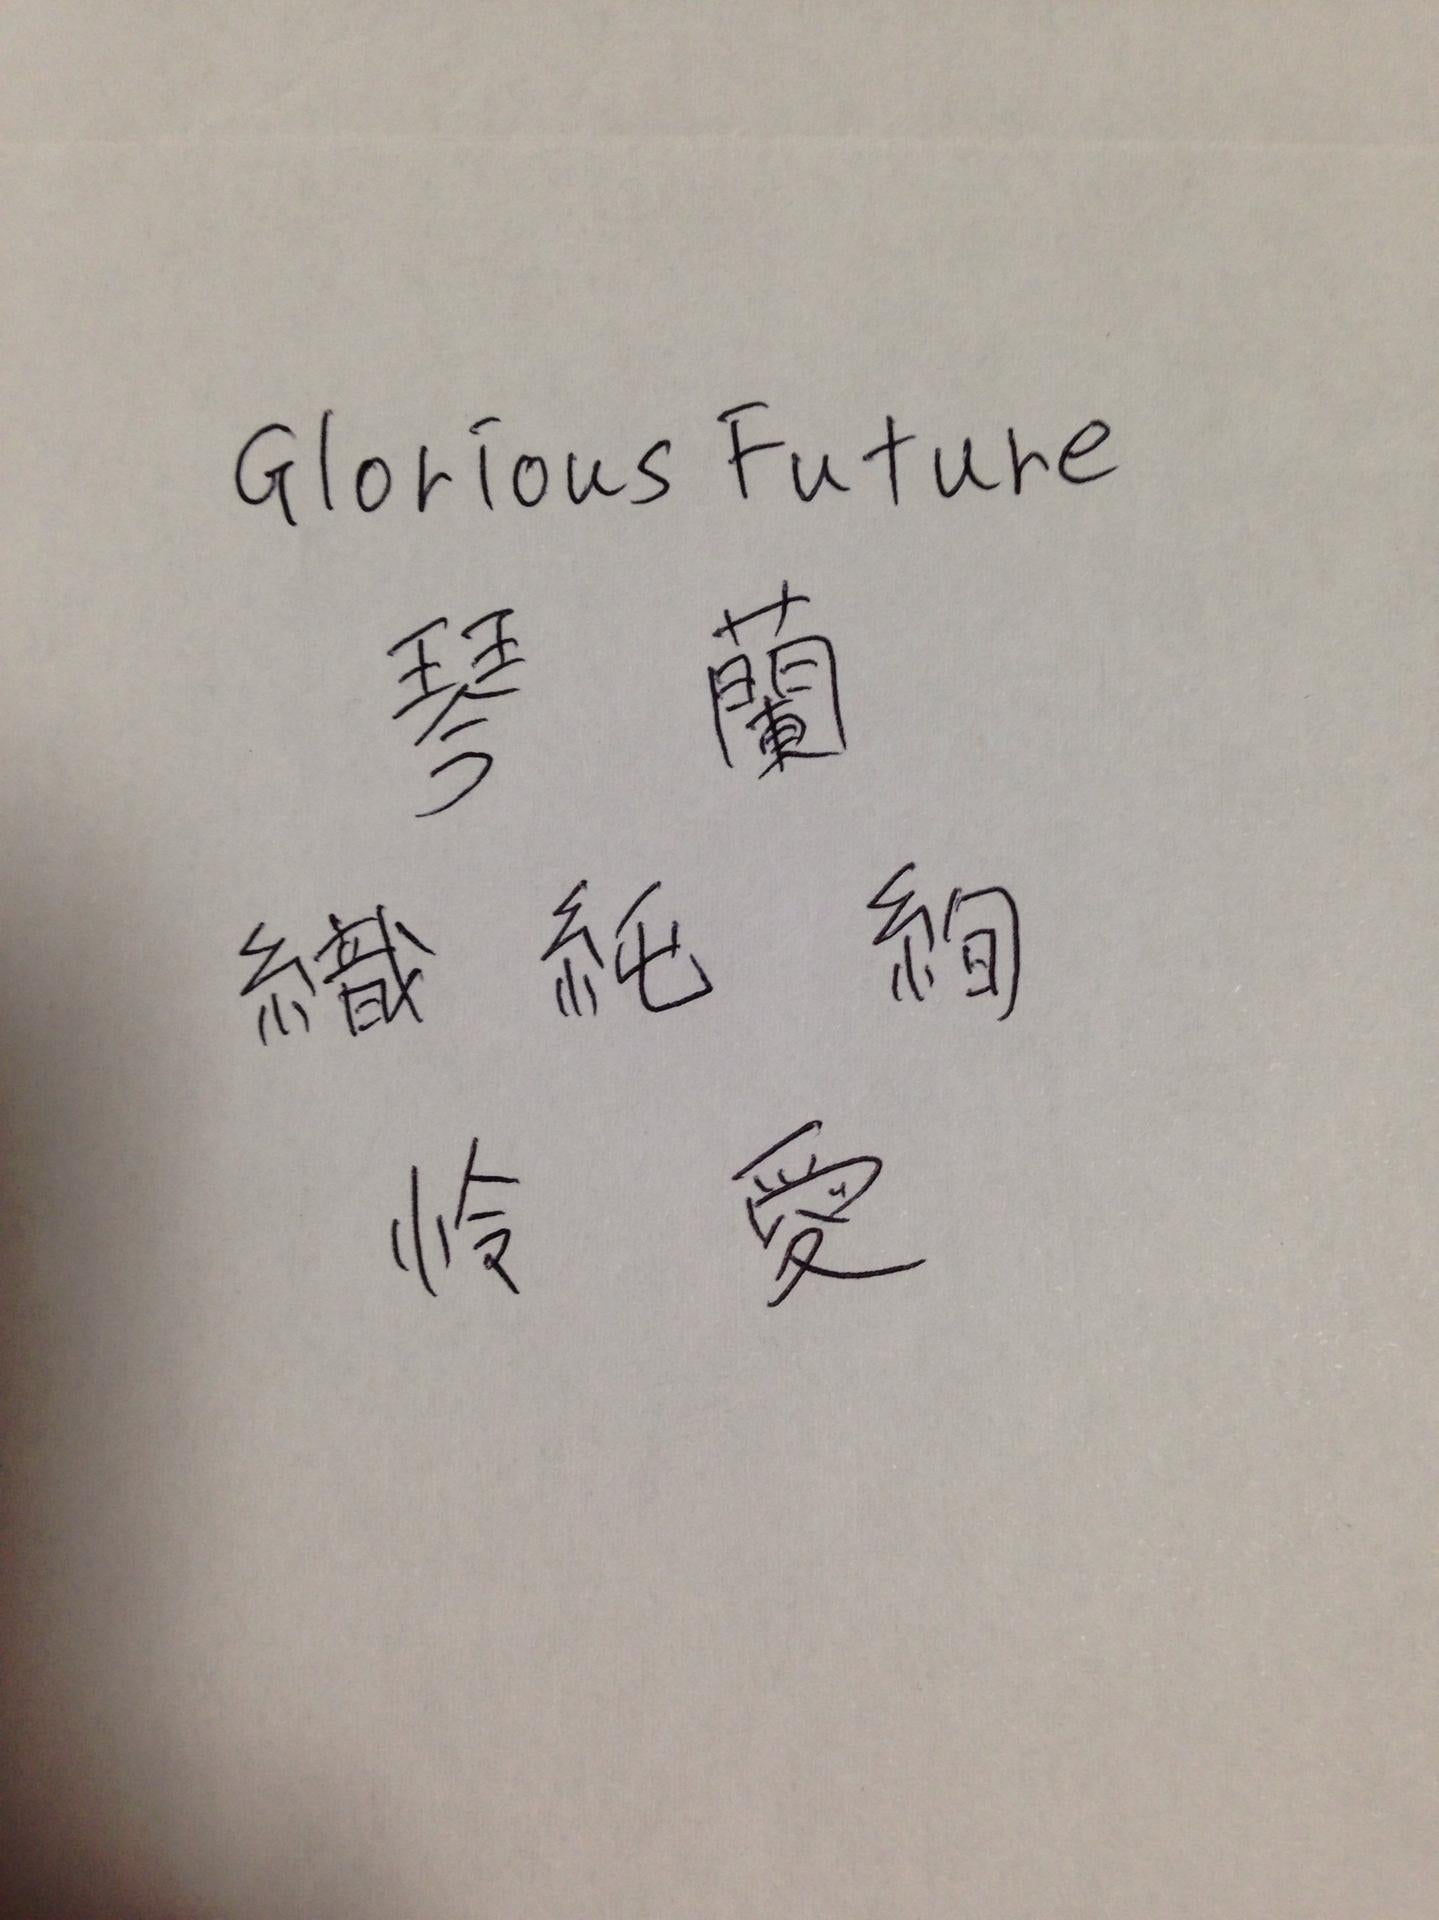 Glorious Future
琴 蘭
織 純 絢
怜 愛